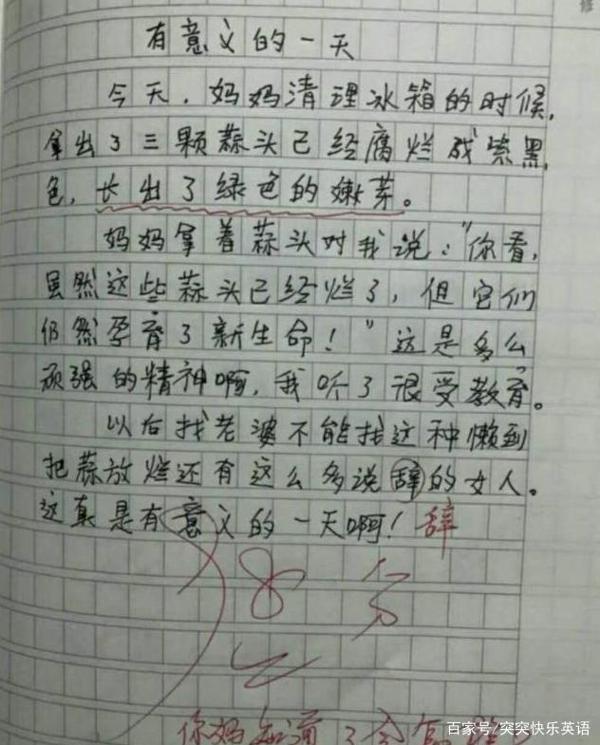 有意义的一天
今天，妈妈清理冰箱的时候，
拿出了三颗蒜头已经腐烂成紫黑
色，长出了绿色的嫩芽。
妈妈拿着蒜头对我说："你看，
虽然这些蒜头已经烂了，但它们
仍然孕育了新生命！"这是多么
顽强的精神啊，我听了很受教育。
以后找老婆不能找这种懒到
把蒜放烂还有这么多说辞的女人。
这真是有意义的一天啊！ 辞
8 分
你妈知道了会
百家号/突突快乐英语